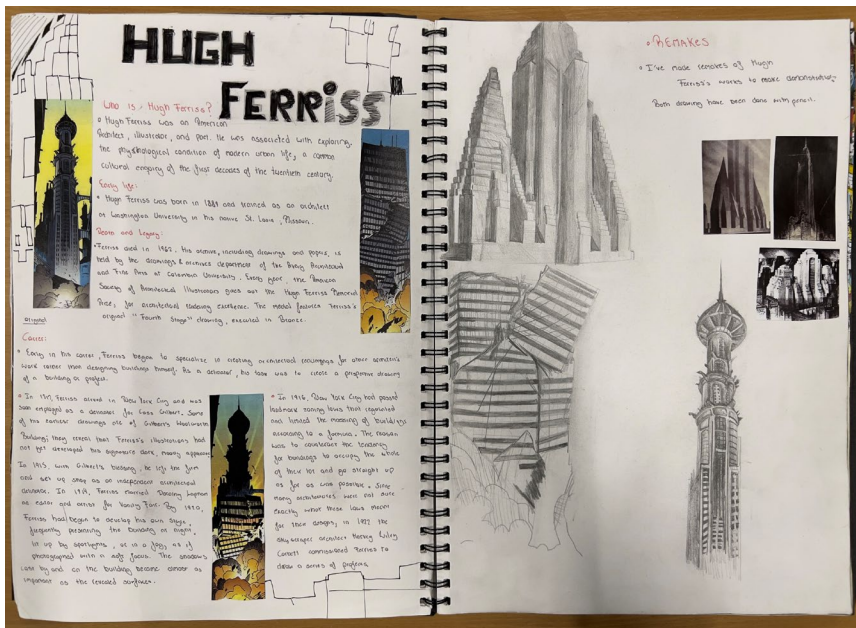 HUGH
FERRISS
Who is Hugh Ferriss?
Hugh Ferriss was an American
Architect, illustrator, and poet. He was associated with exploring
the psychological condition of modern urban life, a common
cultural enquiry of the first decades of the twentieth century.
Early life:
Hugh Ferriss was born in 1889 and trained as an architect
at Washington University in his native St. Louis, Missouri.
Death and Legacy:
Ferriss died in 1962. His archive, including drawings and papers, is
held by the drawings & archives department of the Avery Architectural
and Fine Arts at Columbia University. Every year, the American
Society of Architectural Illustrators gives out the Hugh Ferriss Memorial
Prize, for architectural rendering excellence. The medal features Ferriss's
original "Fourth Stage" drawing, executed in Bronze.
original
Career:
Early in his career, Ferriss began to specialise in creating architectural renderings for other architect's
work rather than designing buildings himself. As a delineator, his task was to create a perspective drawing
of a building or project.
In 1912, Ferriss arrived in New York City and was
soon employed as a delineator for Cass Gilbert. Some
of his earliest drawings are of Gilbert's Woolworth
Building; they reveal that Ferriss's illustrations had
not yet developed his signature dark, moody appearance
In 1915, with Gilbert's blessing, he left the firm
and set up shop as an independent architectural
delineator. In 1914, Ferriss married Dorothy Lapham
an editor and artist for Vanity Fair. By 1920,
Ferriss had begun to develop his own style,
frequently presenting the building at night,
lit up by spotlights, or in a fog, as if
photographed with a soft focus. The shadows
cast by and on the building became almost as
important as the revealed surfaces.
In 1916, New York City had passed
landmark zoning laws that regulated
and limited the massing of buildings
according to a formula. The reason
was to counteract the tendency
for buildings to occupy the whole
of their lot and go straight up
as far as was possible. Since
many architectures were not sure
exactly what these laws meant
for their designs, in 1922 the
skyscraper architect Harvey Wiley
Corbett commissioned Ferriss to
draw a series of projects.
REMAKES
I've made remakes of Hugh
Ferriss's works to make
Both drawing have been done with pencil.